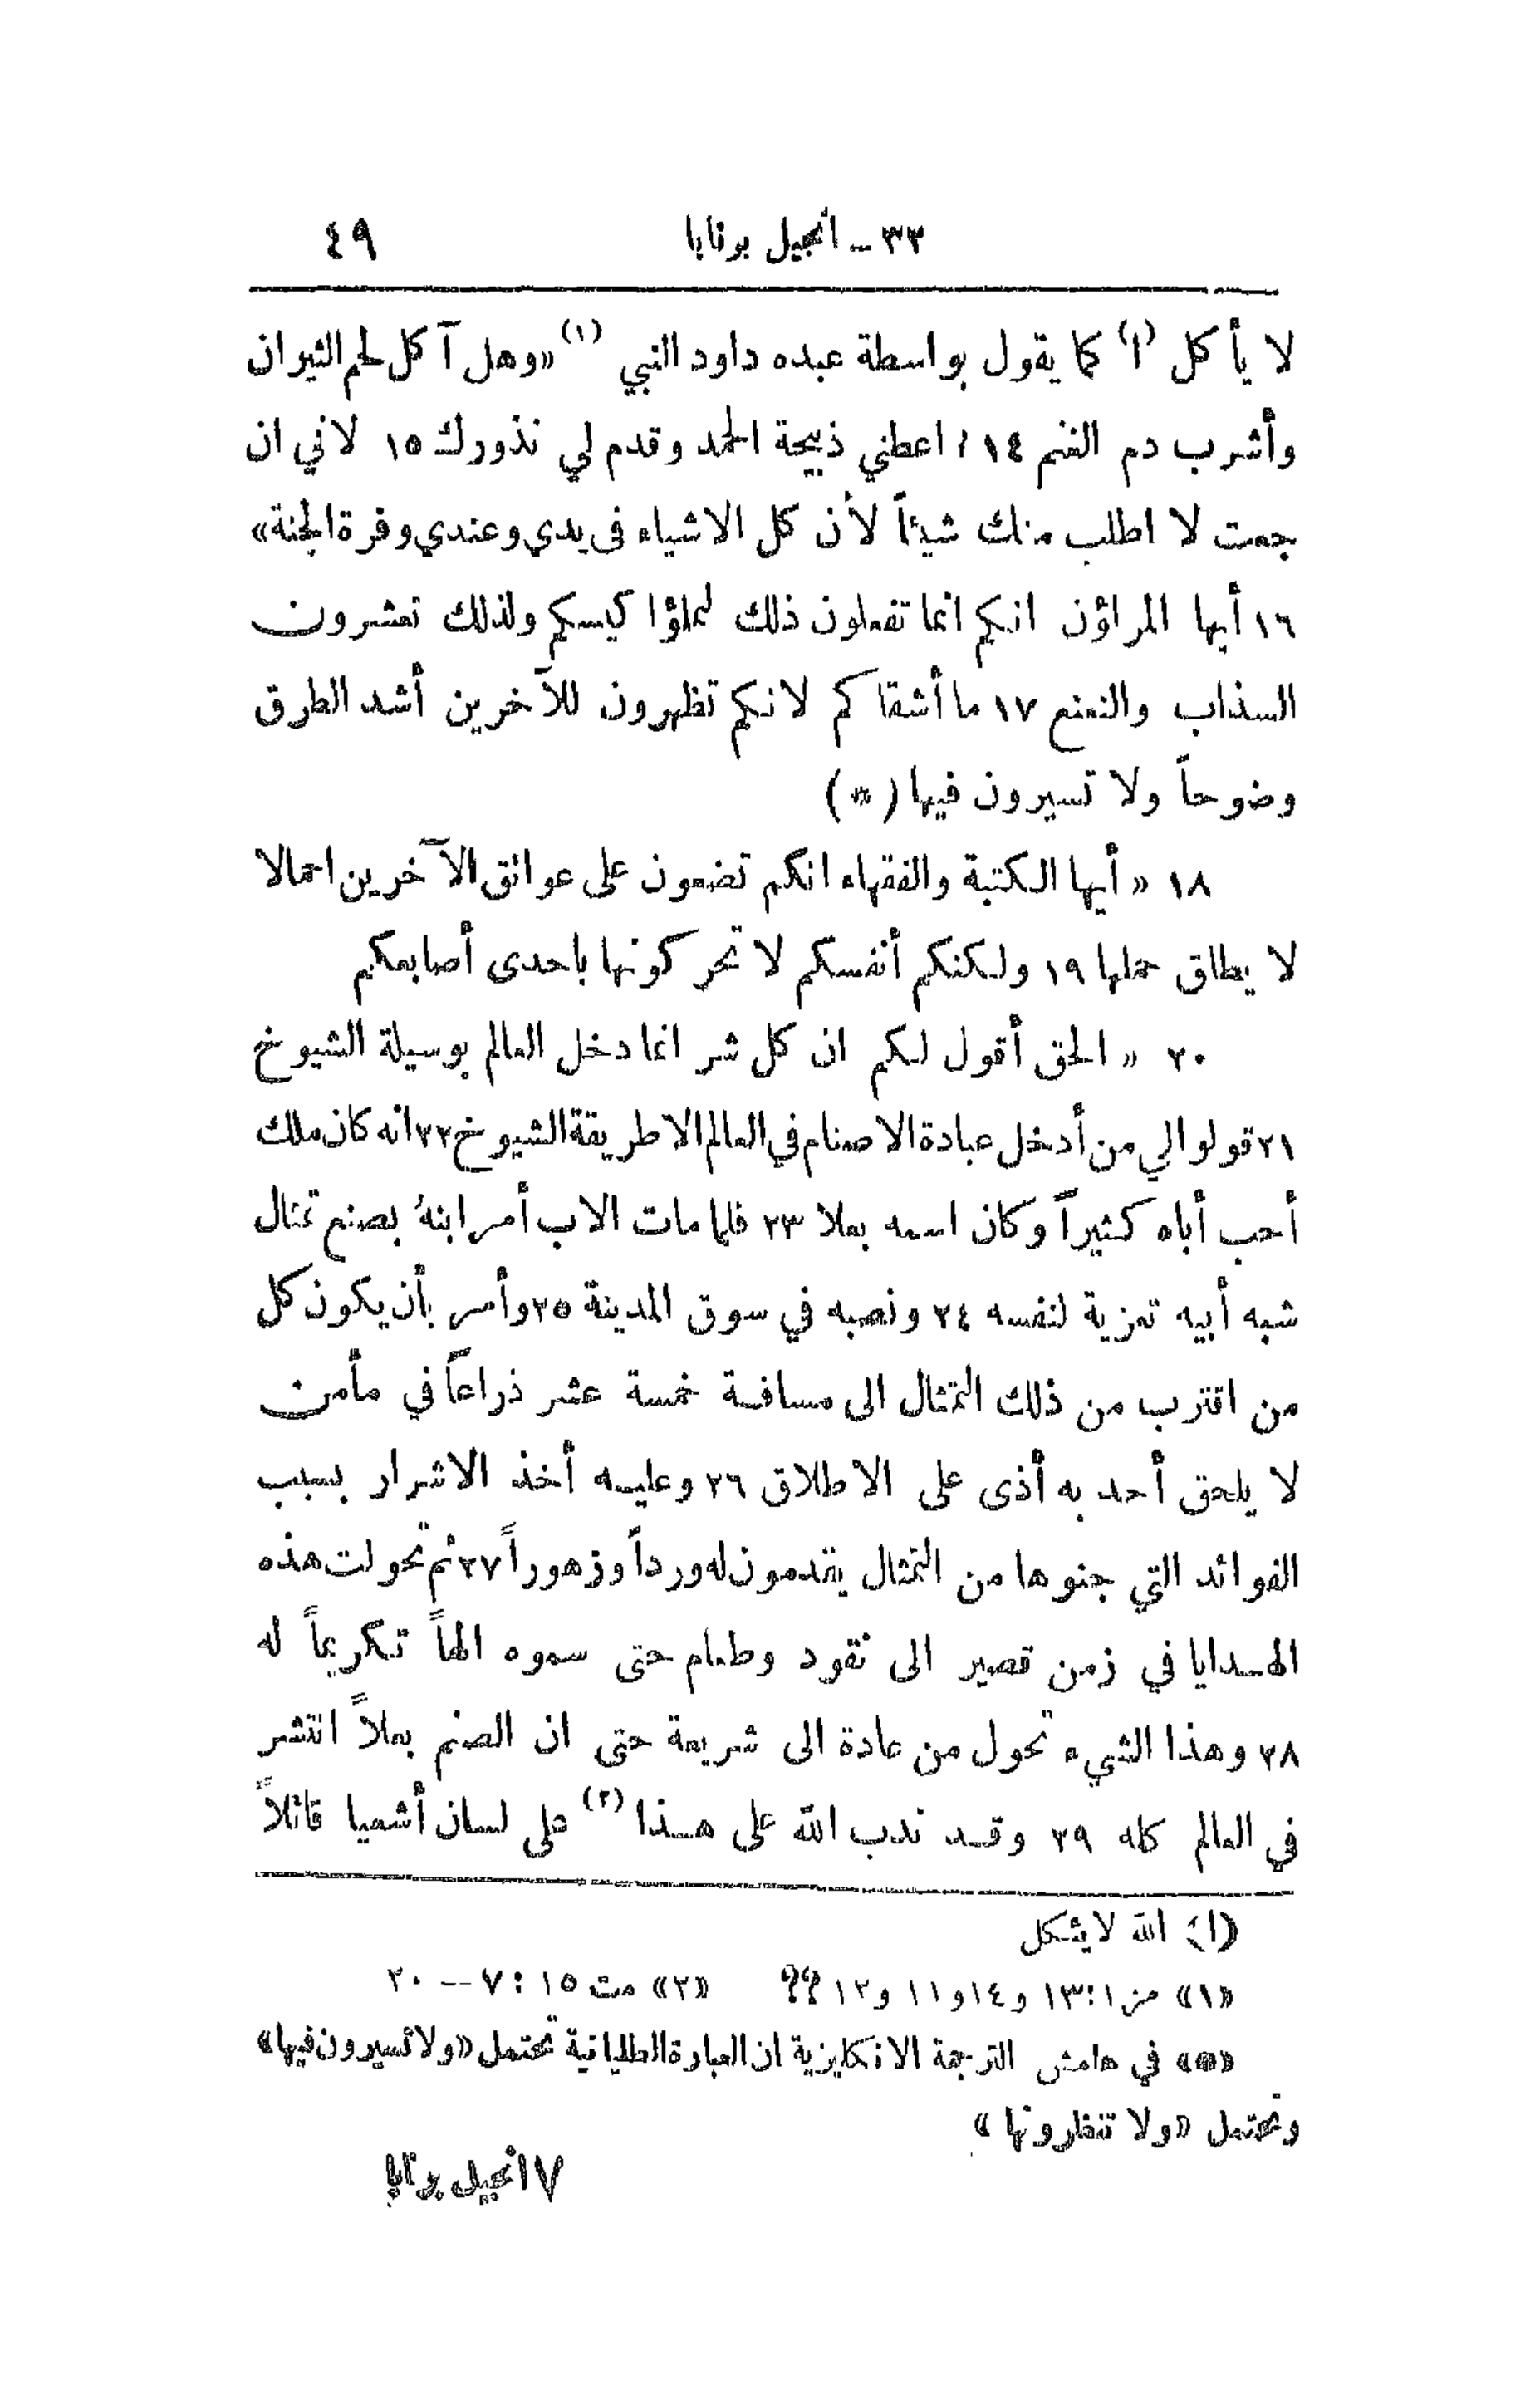 ٣٢ – انجيل برنابا ٤٩
لا يأكل (ا) كما يقول بواسطة عبده داود النبي (١) «وهل آكل لحم الثيران
وأشرب دم الغنم ١٤ اعطني ذبيحة الحمد وقدم لي نذورك ١٥ لاني ان
جعت لا اطلب منك شيئاً لأن كل الاشياء في يدي وعندي وفرة الجنة»
١٦ أيها المراؤن انكم انما تفعلون ذلك لتملؤا كيسكم ولذلك تعشرون
السذاب والنعنع ١٧ ما أشقاكم لانكم تظهرون للآخرين أشد الطرق
وضوحاً ولا تسيرون فيها (*)
١٨ «أيها الكتبة والفقهاء انكم تضعون على عواتق الآخرين احمالا
لا يطاق حملها ١٩ ولكنكم أنفسكم لا تحركونها باحدى أصابعكم
٢٠ «الحق أقول لكم ان كل شر انما دخل العالم بوسيلة الشيوخ
٢١ قولوا لي من أدخل عبادة الاصنام في العالم الا طريقة الشيوخ ٢٢ انه كان ملك
أحب أباه كثيراً وكان اسمه بعلا ٢٣ فلما مات الاب أمر ابنهُ بصنع تمثال
شبه أبيه تعزية لنفسه ٢٤ ونصبه في سوق المدينة ٢٥ وأمر بأن يكون كل
من اقترب من ذلك التمثال الى مسافة خمسة عشر ذراعاً في مأمن
لا يلحق أحد به أذى على الاطلاق ٢٦ وعليه أخذ الاشرار بسبب
الفوائد التي جنوها من التمثال يقدمون له ورداً وزهوراً ٢٧ ثم تحولت هذه
الهدايا في زمن قصير الى نقود وطعام حتى سموه الهاً تكريماً له
٢٨ وهذا الشيء تحول من عادة الى شريعة حتى ان الصنم بعلاً انتشر
في العالم كله ٢٩ وقد ندب الله على هذا (٢) على لسان أشعيا قائلاً
(ا) الله لا يثكل
«١» مز ١ : ١٣ و١٤ و١١ و١٢ ?? «٢» مت ١٥ : ٧ — ٢٠
«*» في هامش الترجمة الانكليزية ان العبارة الطليانية تحتمل «ولا تسيرون فيها»
وتحتمل «ولا تنظرونها»
٧ انجيل برنابا